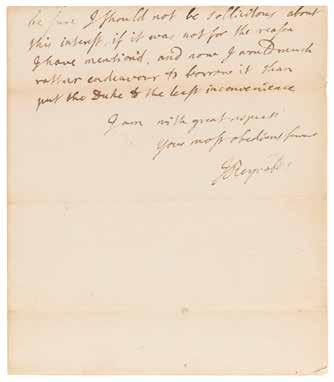 be sure I should not be sollicitous about
this interest, if it was not for the reason
I have mentioned, and now I would much
rather endeavour to borrow it than
put the Duke to the least inconvenience
I am with great respect
Your most obedient servt
JReynolds